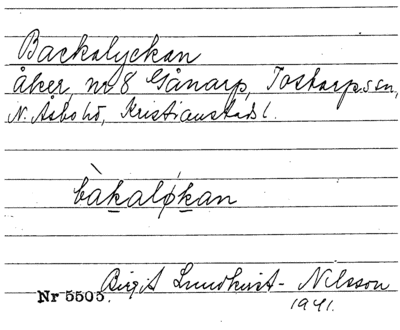 Backalyckan
åker, nr 8 Gånarp, Tostarp sn,
N. Åsbo hd, Kristianstads l.
bàkalø̀kan
Birgit Lundkvist-Nilsson
Nr 5505. 1941.